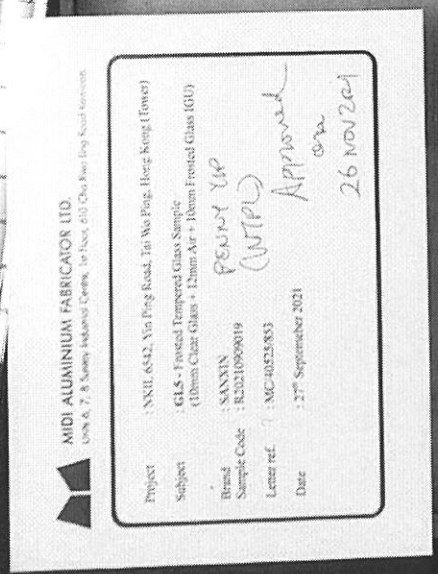 MIDI ALUMINIUM FABRICATOR LTD.
Unit 6, 7, 8 Sunray Industrial Centre, 1/F Floor, 610 Cha Kwo Ling Road Kowloon
Project : NKIL 6542, Yin Ping Road, Tai Wo Ping, Hong Kong (Tower)
Subject : GL5 - Frosted Tempered Glass Sample
(10mm Clear Glass + 12mm Air + 10mm Frosted Glass IGU)
Brand : SANXIN
Sample Code : R20210909019
Letter ref. : MC/40525/853
Date : 27th Septemeber 2021
PENNY YIP
(WTPL)
Approved
on
26 NOV 2021